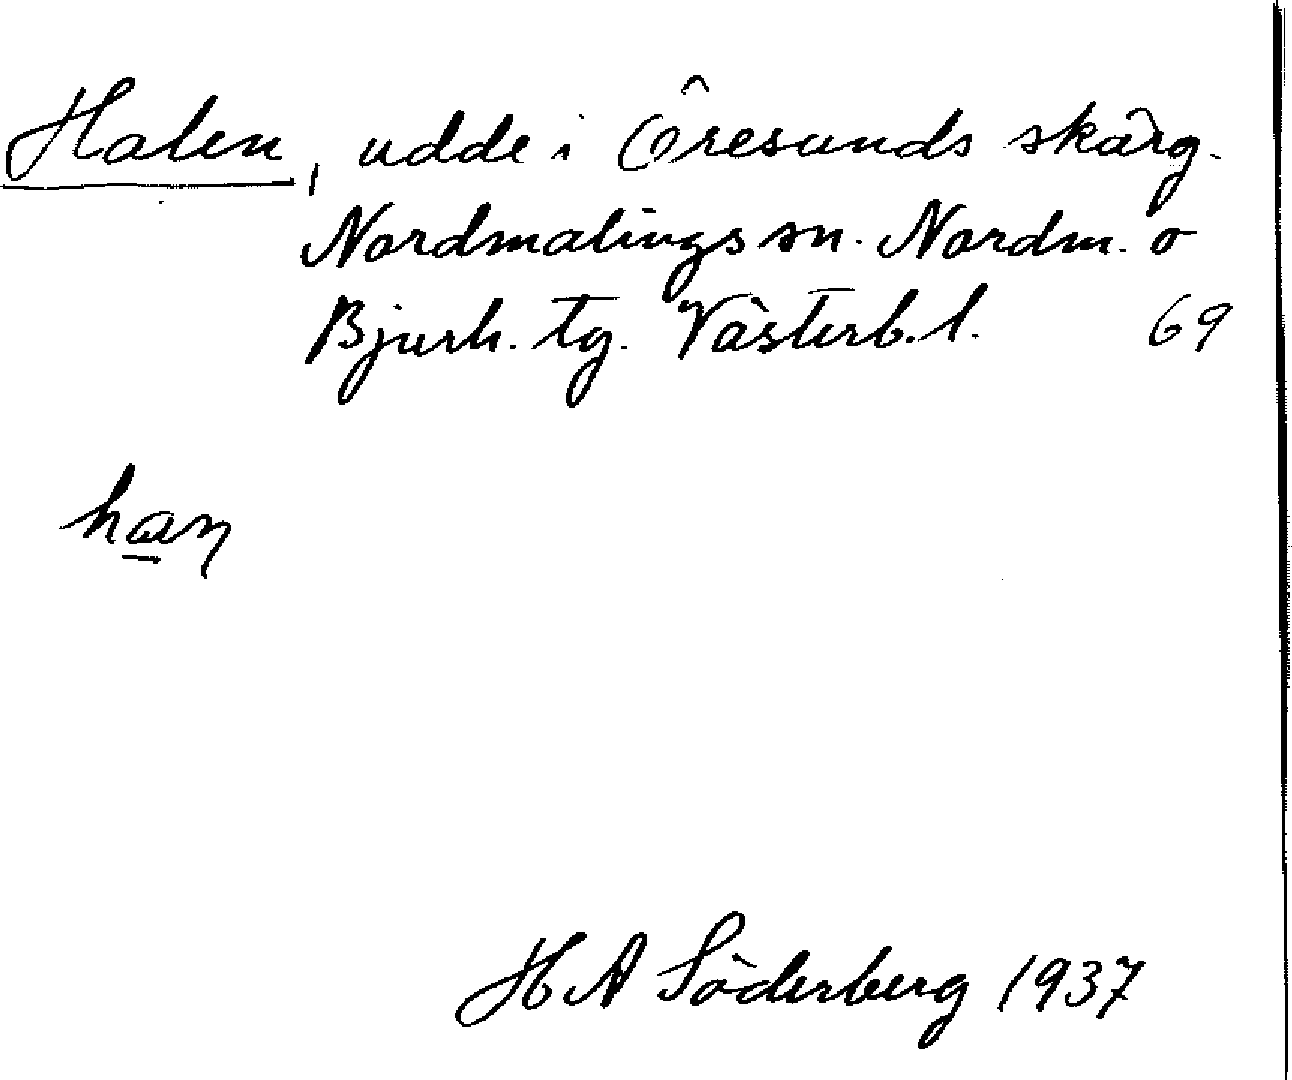 Halen, udde i Öresunds skärg.
Nordmalings sn. Nordm. o
Bjurh. tg. Västerb. l. 69
haɳ
H A Söderberg 1937